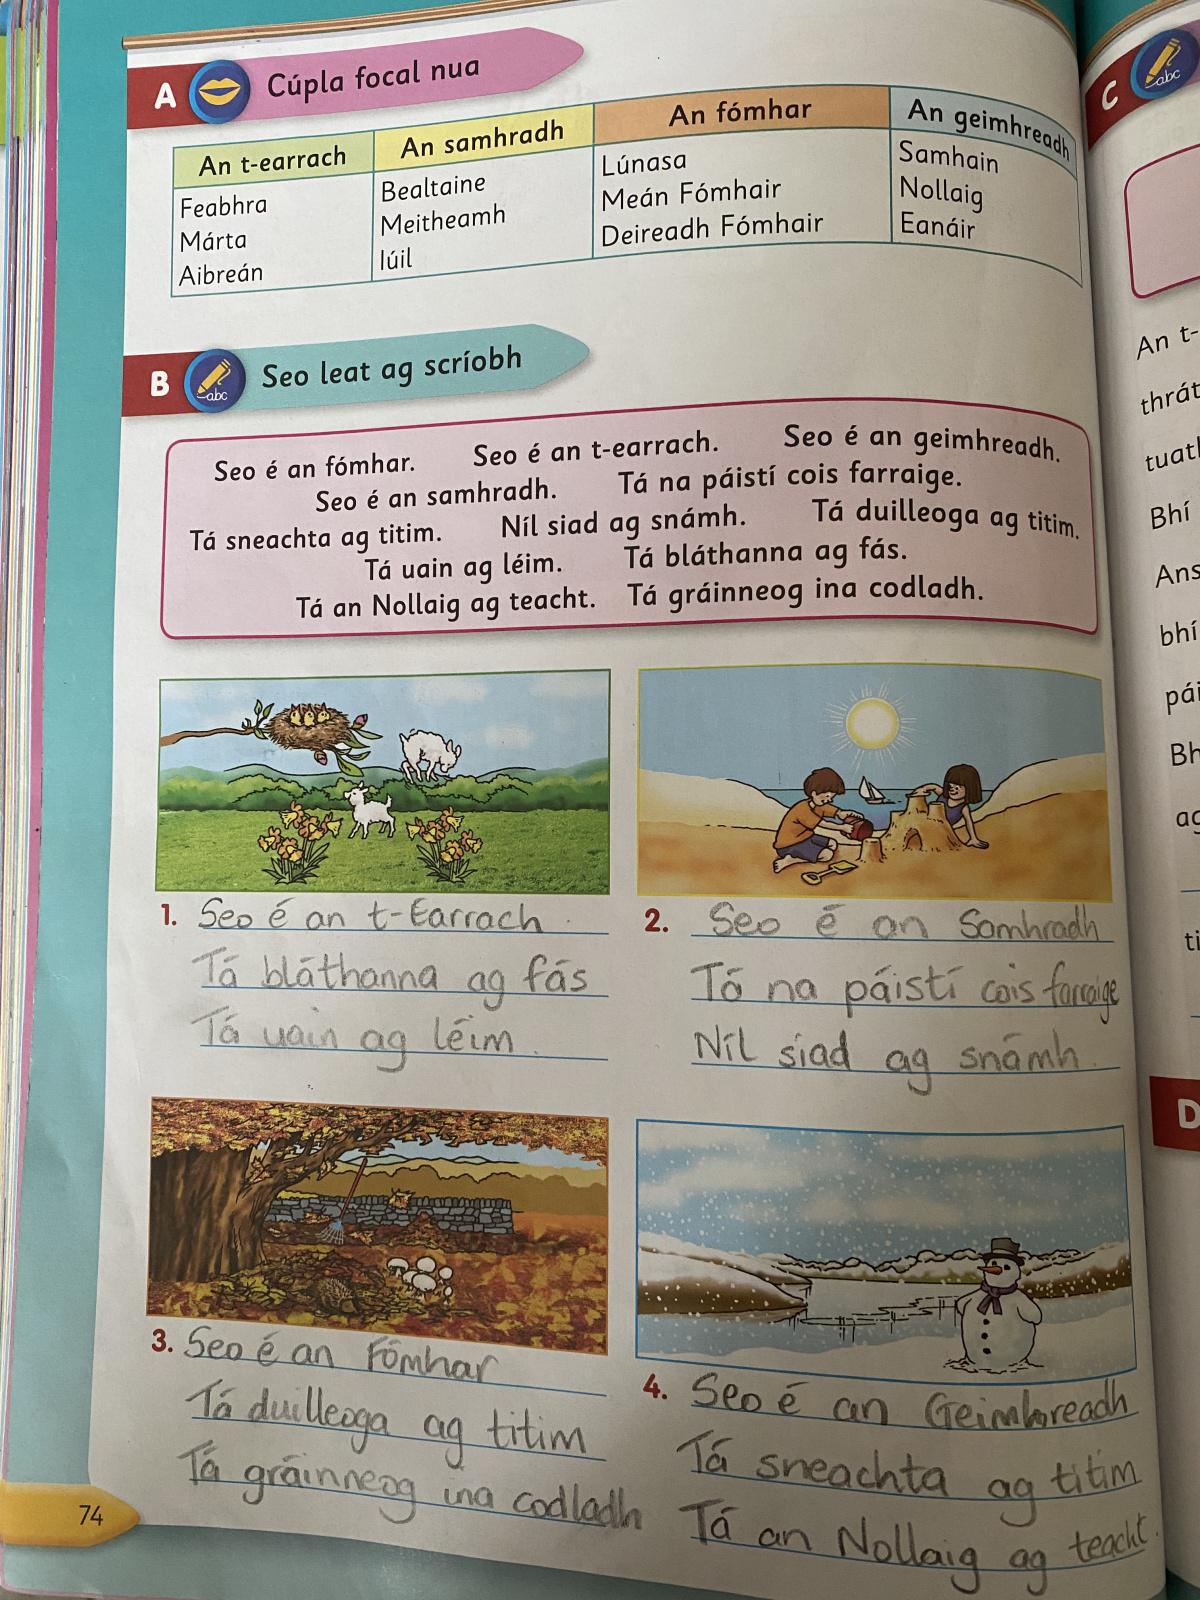 A Cúpla focal nua
An t-earrach An samhradh An fómhar An geimhreadh
Feabhra Bealtaine Lúnasa Samhain
Márta Meitheamh Meán Fómhair Nollaig
Aibreán Iúil Deireadh Fómhair Eanáir
B abc Seo leat ag scríobh
Seo é an fómhar. Seo é an t-earrach. Seo é an geimhreadh.
Seo é an samhradh. Tá na páistí cois farraige.
Tá sneachta ag titim. Níl siad ag snámh. Tá duilleoga ag titim.
Tá uain ag léim. Tá bláthanna ag fás.
Tá an Nollaig ag teacht. Tá gráinneog ina codladh.
1. Seo é an t-Earrach.
Tá bláthanna ag fás
Tá uain ag léim.
2. Seo é an Samhradh
Tá na páistí cois farraige
Níl siad ag snámh.
3. Seo é an Fómhar
Tá duilleoga ag titim
Tá gráinneog ina codladh
4. Seo é an Geimhreadh
Tá sneachta ag titim
Tá an Nollaig ag teacht.
74
C abc
An t-
Bhí
bhí
D